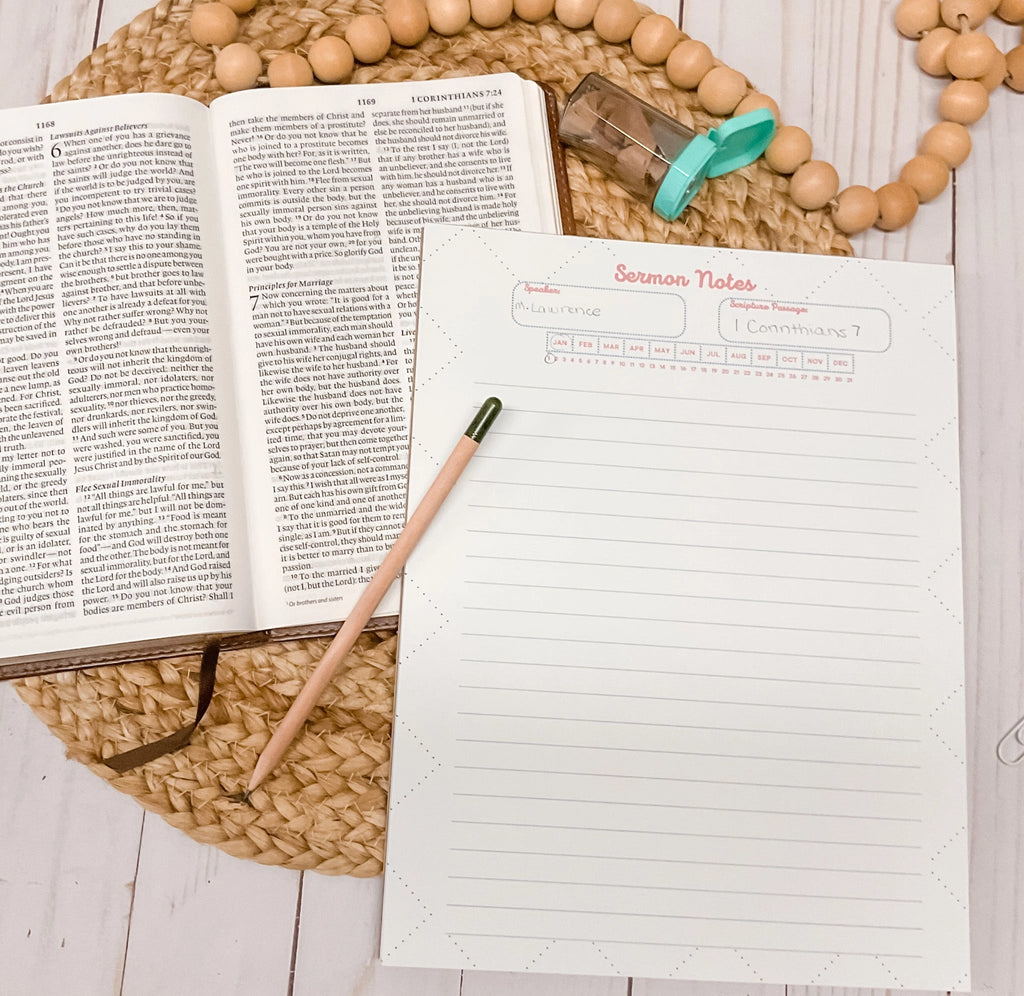 1168
not consist in
do you wish?
rod, or with
ess?
s the Church
d that there
among you,
olerated even
has his father's
t! Ought you
him who has
n among you.
ody, I am pres-
resent, I have
gment on the
When you are
the Lord Jesus
with the power
to deliver this
struction of the
may be saved in
good. Do you
leaven leavens
nse out the old
e a new lump, as
ened. For Christ,
been sacrificed.
brate the festival,
en, the leaven of
h the unleavened
truth.
my letter not to
lly immoral peo-
ning the sexually
ld, or the greedy
olaters, since then
out of the world.
ng to you not to
who bears the
guilty of sexual
, or is an idolater,
r swindler—not
a one. 12 For what
dging outsiders? Is
the church whom
God judges those
e evil person from
Lawsuits Against Believers
6 When one of you has a grievance
against another, does he dare go to
law before the unrighteous instead of
the saints? 2 Or do you not know that
the saints will judge the world? And
if the world is to be judged by you, are
you incompetent to try trivial cases?
3 Do you not know that we are to judge
angels? How much more, then, mat-
ters pertaining to this life! 4 So if you
have such cases, why do you lay them
before those who have no standing in
the church? 5 I say this to your shame.
Can it be that there is no one among you
wise enough to settle a dispute between
the brothers, 6 but brother goes to law
against brother, and that before unbe-
lievers? 7 To have lawsuits at all with
one another is already a defeat for you.
Why not rather suffer wrong? Why not
rather be defrauded? 8 But you your-
selves wrong and defraud—even your
own brothers!
9 Or do you not know that the unrigh-
teous will not inherit the kingdom of
God? Do not be deceived: neither the
sexually immoral, nor idolaters, nor
adulterers, nor men who practice homo-
sexuality, 10 nor thieves, nor the greedy,
nor drunkards, nor revilers, nor swin-
dlers will inherit the kingdom of God.
11 And such were some of you. But you
were washed, you were sanctified, you
were justified in the name of the Lord
Jesus Christ and by the Spirit of our God.
Flee Sexual Immorality
12 "All things are lawful for me," but
not all things are helpful. "All things are
lawful for me," but I will not be dom-
inated by anything. 13 "Food is meant
for the stomach and the stomach for
food"—and God will destroy both one
and the other. The body is not meant for
sexual immorality, but for the Lord, and
the Lord for the body. 14 And God raised
the Lord and will also raise us up by his
power. 15 Do you not know that your
bodies are members of Christ? Shall I
1169
1 CORINTHIANS 7:24
then take the members of Christ and
make them members of a prostitute?
Never! 16 Or do you not know that he
who is joined to a prostitute becomes
one body with her? For, as it is written,
"The two will become one flesh." 17 But
he who is joined to the Lord becomes
one spirit with him. 18 Flee from sexual
immorality. Every other sin a person
commits is outside the body, but the
sexually immoral person sins against
his own body. 19 Or do you not know
that your body is a temple of the Holy
Spirit within you, whom you have from
God? You are not your own, 20 for you
were bought with a price. So glorify God
in your body.
Principles for Marriage
7 Now concerning the matters about
which you wrote: "It is good for a
man not to have sexual relations with a
woman." 2 But because of the temptation
to sexual immorality, each man should
have his own wife and each woman her
own husband. 3 The husband should
give to his wife her conjugal rights, and
likewise the wife to her husband. 4 For
the wife does not have authority over
her own body, but the husband does.
Likewise the husband does not have
authority over his own body, but the
wife does. 5 Do not deprive one another,
except perhaps by agreement for a lim-
ited time, that you may devote your-
selves to prayer; but then come together
again, so that Satan may not tempt you
because of your lack of self-control.
6 Now as a concession, not a command,
I say this. 7 I wish that all were as I myse
am. But each has his own gift from Go
one of one kind and one of another
8 To the unmarried and the wid
I say that it is good for them to rem
single, as I am. 9 But if they cannot e
cise self-control, they should mar
it is better to marry than to bu
10 To the married I giv
(not I, but the Lord): the
1 Or brothers and sisters
separate from her husband 11 (but if she
does, she should remain unmarried or
else be reconciled to her husband), and
the husband should not divorce his wife.
12 To the rest I say (I, not the Lord)
that if any brother has a wife who is
an unbeliever, and she consents to live
with him, he should not divorce her. 13 If
any woman has a husband who is an
unbeliever, and he consents to live with
her, she should not divorce him. 14 For
the unbelieving husband is made holy
because of his wife, and the unbelieving
wife is
Sermon Notes
Speaker:
M. Lawrence
Scripture Passage:
1 Corinthians 7
JAN FEB MAR APR MAY JUN JUL AUG SEP OCT NOV DEC
1 2 3 4 5 6 7 8 9 10 11 12 13 14 15 16 17 18 19 20 21 22 23 24 25 26 27 28 29 30 31